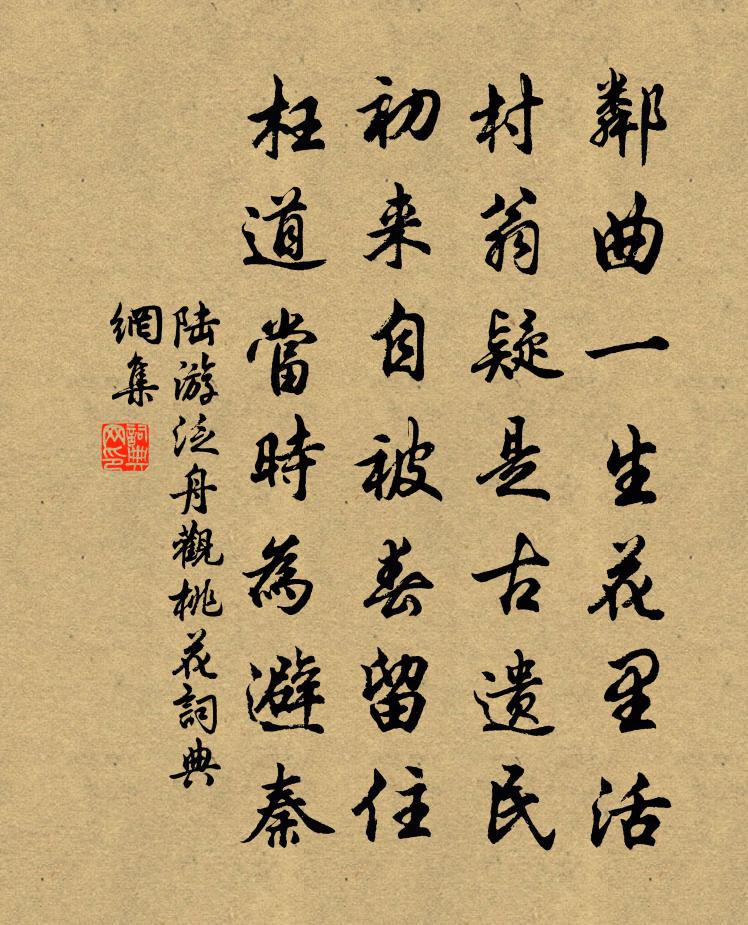 鄰曲一生花里活
村翁疑是古遺民
初来自被春留住
枉道當時為避秦
陆游泛舟觀桃花詞典
網集
詞典
网印